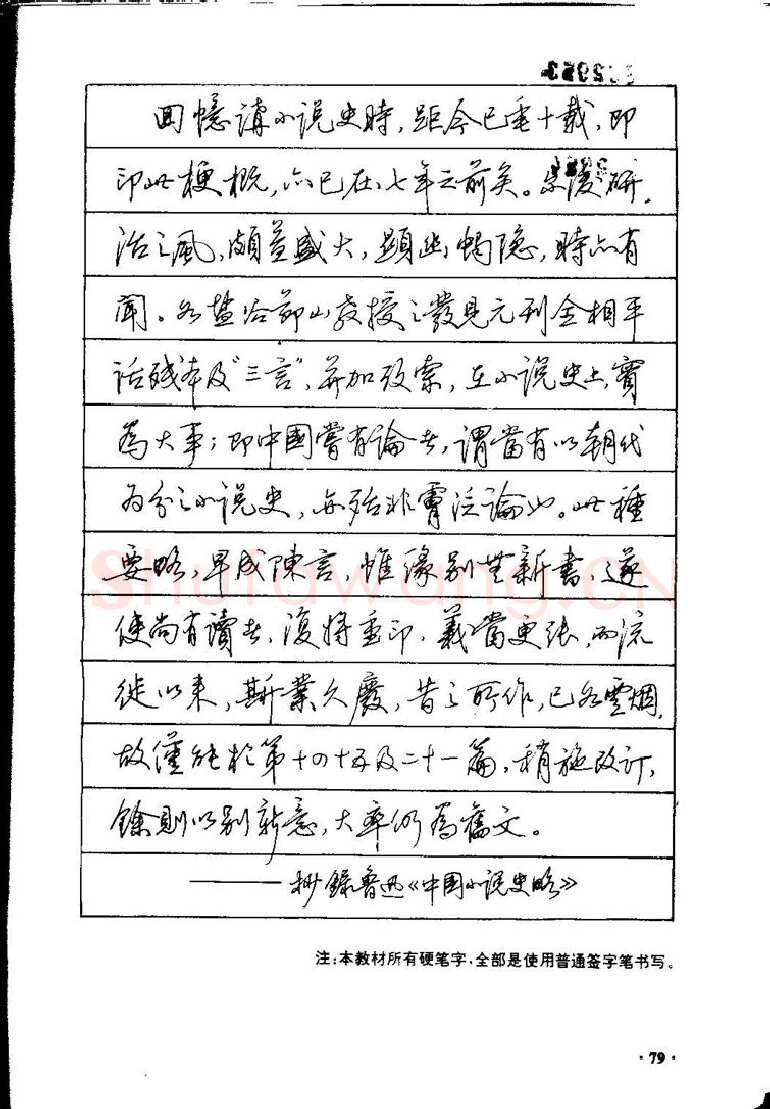 回憶講小说史時，距今已垂十載，即
印此梗概，亦已在七年之前矣。尔後研
治之風，頗益盛大，顯幽燭隐，時亦有
聞。如盐谷節山教授之發見元刊全相平
话残本及“三言”，并加攷索，在小说史上，實
為大事；即中國嘗有論者，謂當有以朝代
为分之小说史，亦殆非膚泛論也。此種
要略，早成陳言，惟缘别無新書，遂
使尚有讀者，復將重印，義當更张，而流
徙以来，斯業久廢，昔之所作，已如雲烟，
故僅能於第十四十五及二十一篇，稍施改订，
餘則以别新意，大率仍為舊文。
———抄錄鲁迅《中国小说史略》
注：本教材所有硬笔字，全部是使用普通签字笔书写。
·79·
Shufawang.CN